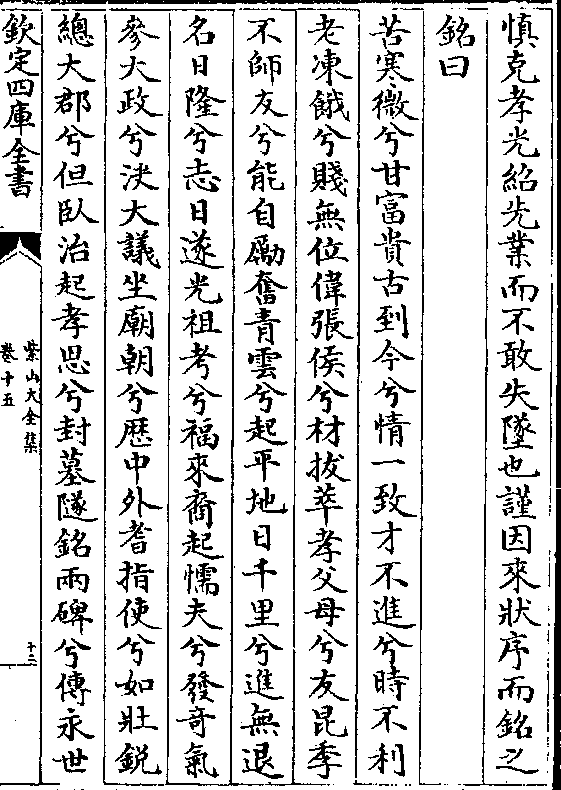 慎克孝光紹先業而不敢失墜也謹因來狀序而銘之
銘曰
苦寒微兮甘富貴古到今兮情一致才不進兮時不利
老凍餓兮賤無位偉張侯兮材拔萃孝父母兮友昆季
不師友兮能自勵奮青雲兮起平地日千里兮進無退
名日隆兮志日遂光祖考兮福來裔起懦夫兮發竒氣
參大政兮決大議坐廟朝兮歴中外耆指使兮如壯銳
總大郡兮但臥治起孝思兮封墓隧銘兩碑兮傳永世
欽定四庫全書
紫山大全集
卷十五
十三